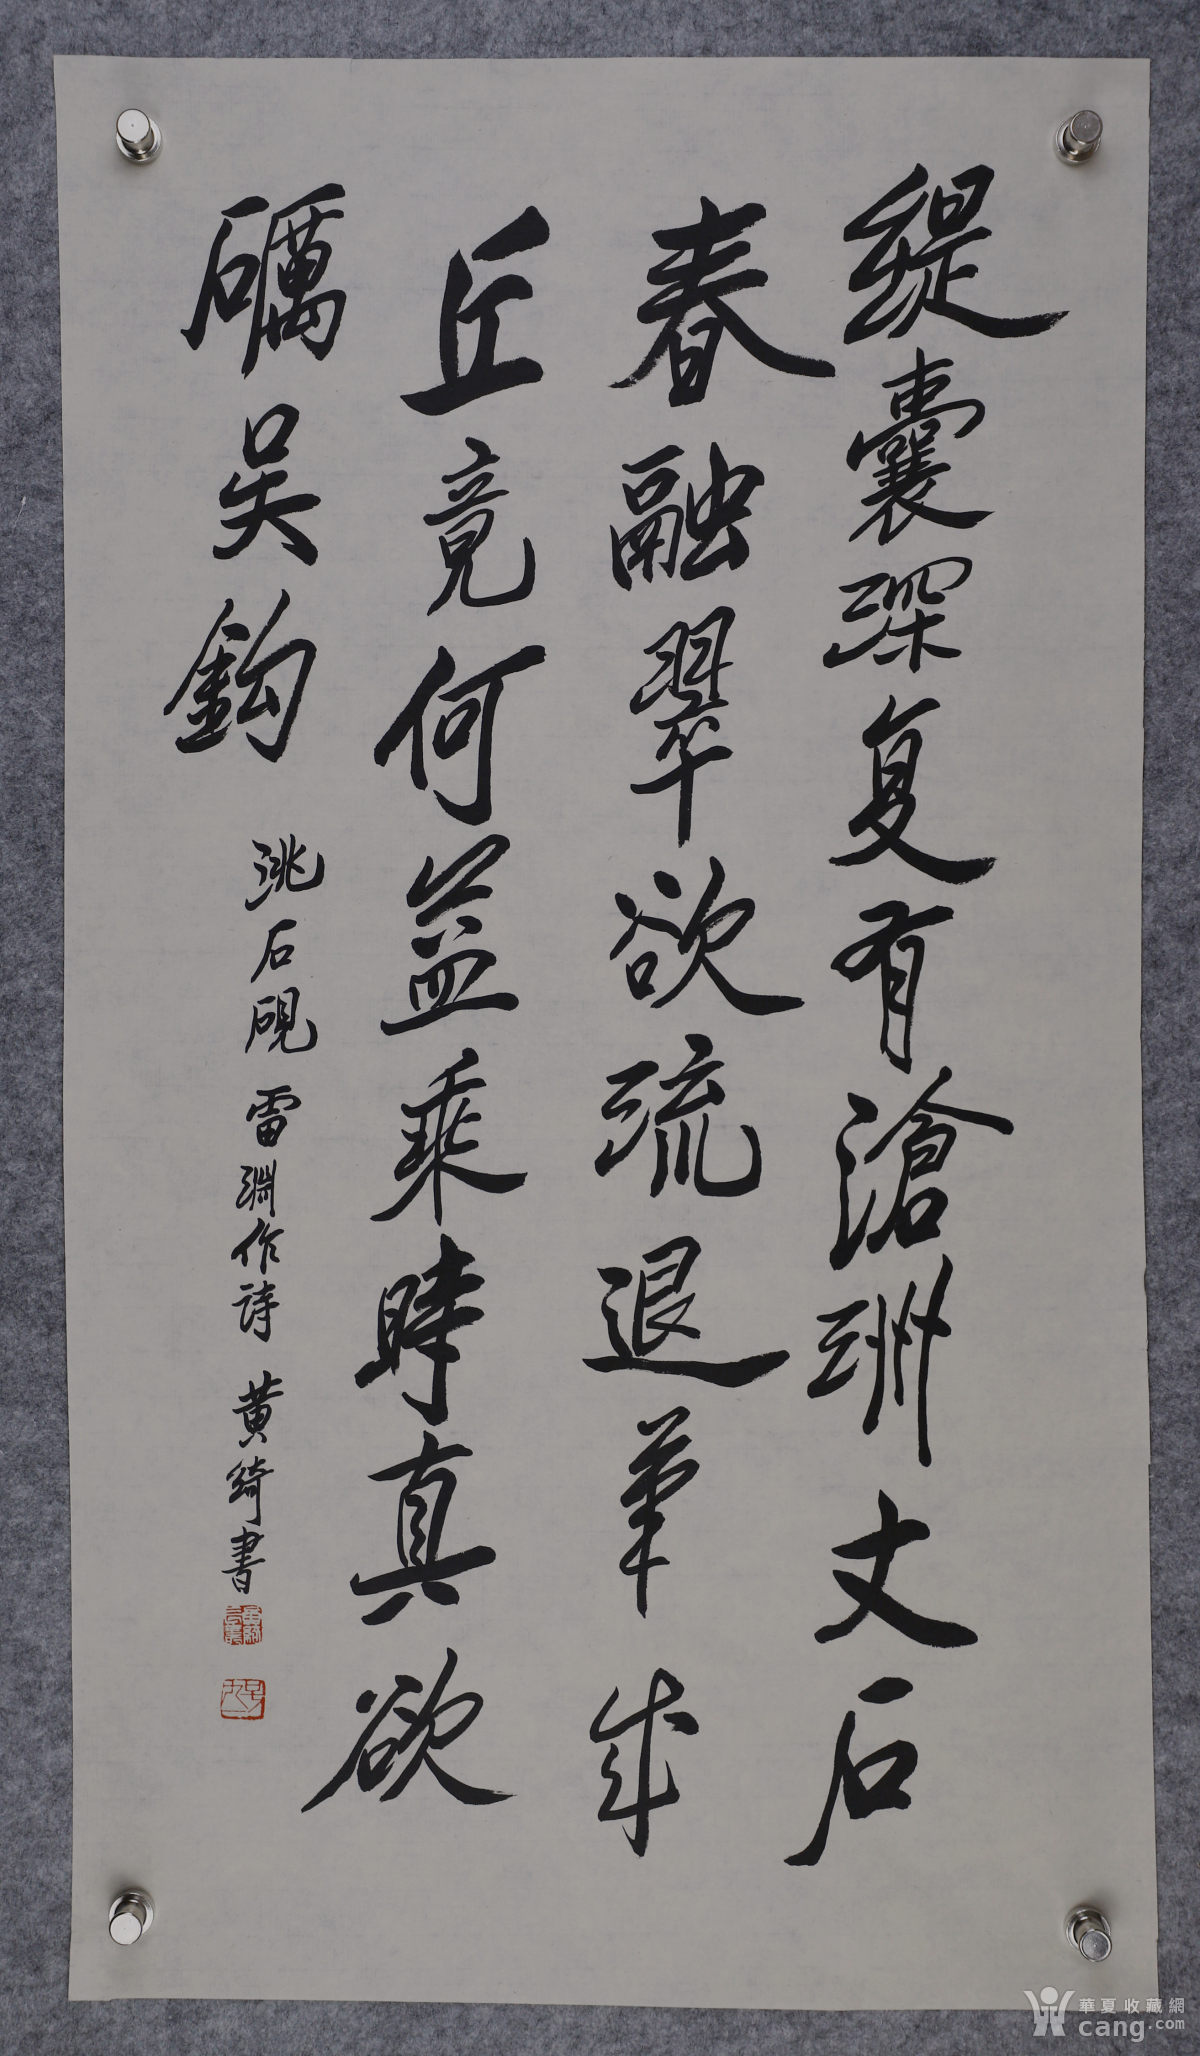 缇囊深复有滄洲文石
春融翠欲流退筆成
丘竟何益乘時真欲
礪吴鈎
洮石硯 雷淵作詩 黄綺書
華夏收藏網
cang.com